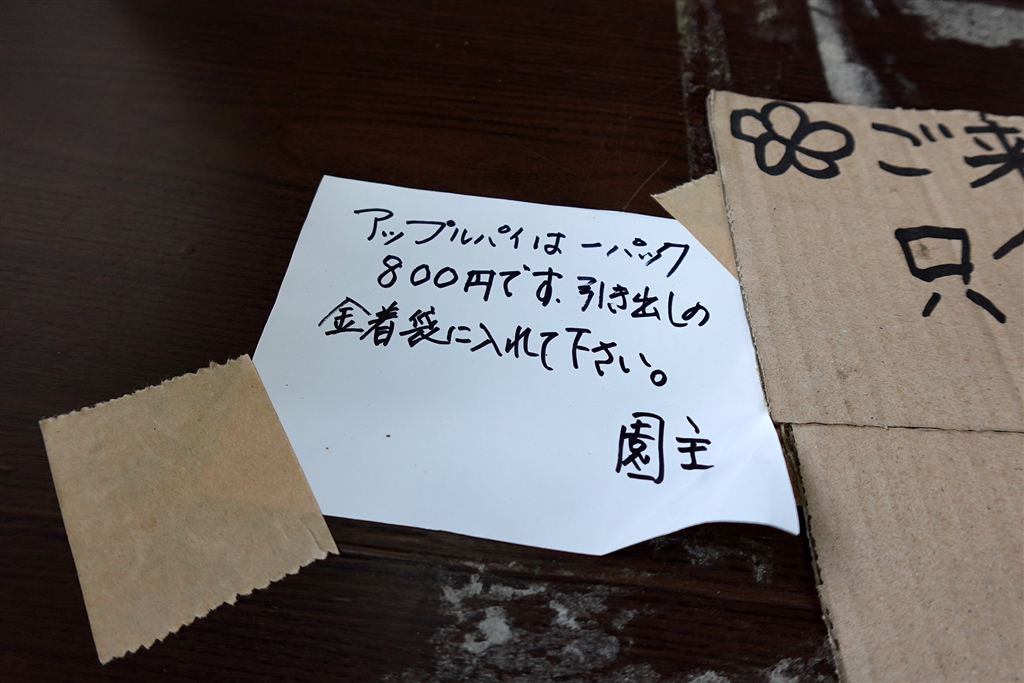 アップルパイは一パック
800円です、引き出しの
金着袋に入れて下さい。
園主
ご来
只